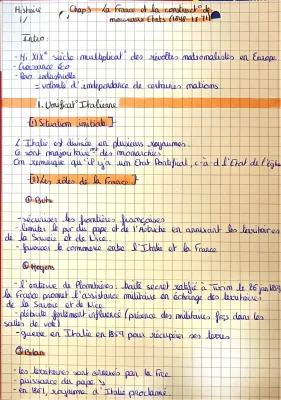 Histoire
Chap 3. La France et la construct° de
nouveaux Etats (1848-1871)
Intro:
- Mi XIX° siècle multiplicat° des révoltes nationalistes en Europe
- Croissance éco
- Rév industrielle
= volonté d'indépendance de certaines nations
I. Unificat° Italienne
1) Situation initiale
L'Italie est divisée en plusieurs royaumes.
Ce sont majoritairemt des monarchies.
On remarque qu'il y a un Etat Pontifical, c-à-d l'Etat de l'église
2) Les rôles de la France
① Buts
- sécuriser les frontières françaises
- limiter le pvr du pape et de l'Autriche en annexant les territoires
de la Savoie et de Nice.
- favoriser le commerce entre l'Italie et la France
② Moyens
- l'entrevue de Plombières: traité secret ratifié à Turin le 26 jan 1859
la France promet l'assistance militaire en échange des territoires
de la Savoie et de Nice.
- plébiscite fortement influencé (présence des militaires frçs dans les
salles de vote)
- guerre en Italie en 1859 pour récupérer ses terres
③ Bilan
- les territoires sont annexés par la Frce
- puissance du pape ↘
- en 1861, royaume d'Italie proclamé